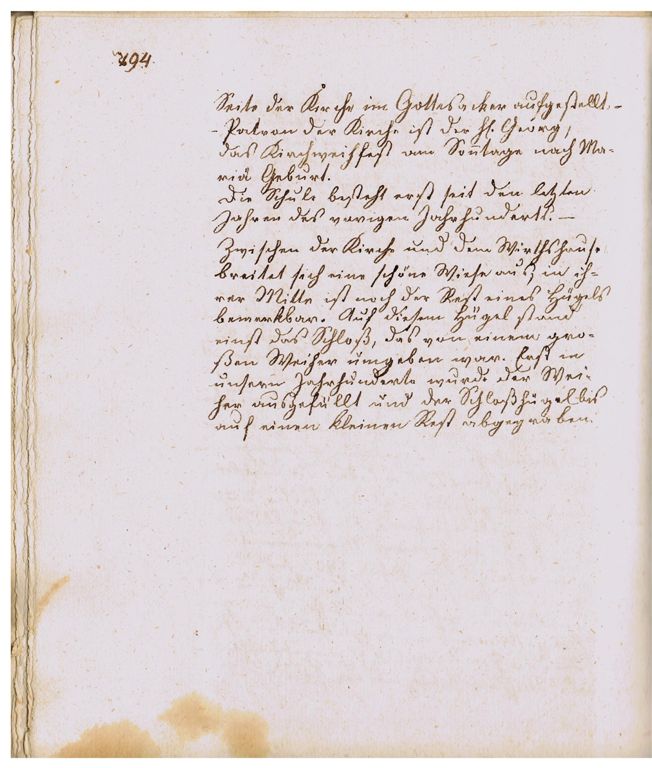 494.
Seite der Kirche im Gottesacker aufgestellt. –
– Patron der Kirche ist der hl. Georg,
das Kirchweihfest am Sontage nach Ma-
riä Geburt.
Die Schule besteht erst seit den letzten
Jahren des vorigen Jahrhunderts. —
Zwischen der Kirche und dem Wirthshause
breitet sich eine schöne Wiese aus, in ih-
rer Mitte ist noch der Rest eines Hügels
bemerkbar. Auf diesem Hügel stand
einst das Schloß, das von einem gro-
ßen Weiher umgeben war. Erst in
unserm Jahrhunderte wurde der Wei-
her ausgefüllt und der Schloßhügel bis
auf einen kleinen Rest abgegraben.